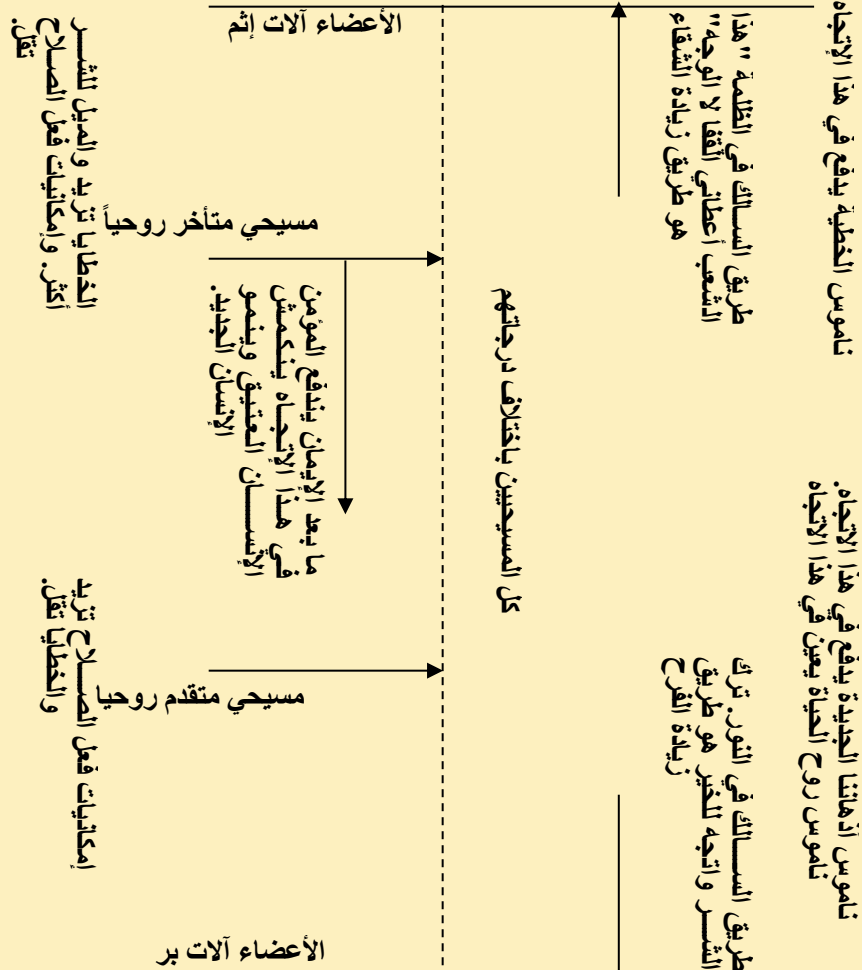 الأعضاء آلات إثم
ناموس الخطية يدفع في هذا الإتجاه
طريق السالك في الظلمة "هذا
الشعب أعطاني القفا لا الوجه"
هو طريق زيادة الشقاء
الخطايا تزيد والميل للشر
أكثر. وإمكانيات فعل الصلاح
تقل.
مسيحي متأخر روحياً
ما بعد الإيمان يندفع المؤمن
في هذا الإتجاه ينكمش
الإنسان العتيق وينمو
الإنسان الجديد.
كل المسيحيين باختلاف درجاتهم
ناموس أذهاننا الجديدة يدفع في هذا الاتجاه.
ناموس روح الحياة يعين في هذا الاتجاه
طريق السالك في النور. ترك
الشر واتجه للخير هو طريق
زيادة الفرح
إمكانيات فعل الصلاح تزيد
والخطايا تقل.
مسيحي متقدم روحيا
الأعضاء آلات بر